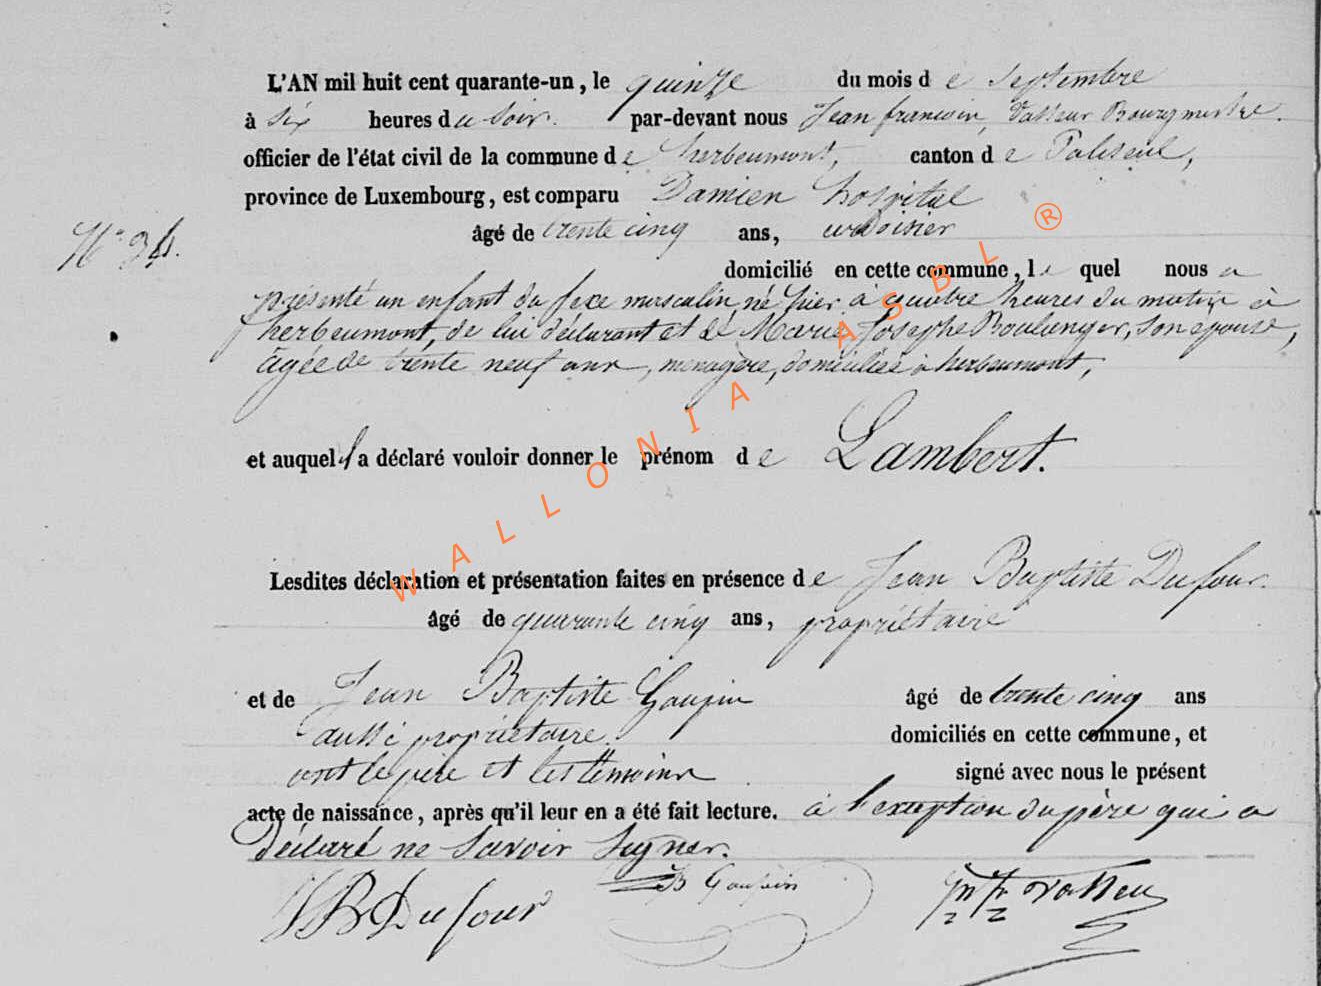 L'AN mil huit cent quarante-un, le quinze du mois de septembre
à six heures du soir. par-devant nous Jean francois, Vasseur Bourgmestre.
officier de l'état civil de la commune de herbeumont, canton de Paliseul,
province de Luxembourg, est comparu Damien hospital
N° 34. âgé de trente cinq ans, ardoisier
domicilié en cette commune, le quel nous a
présenté un enfant du sexe masculin né hier à quatre heures du matin à
herbeumont, de lui déclarant et de Marie Josephe Boulanger, son épouse,
agée de trente neuf ans, menagère, domiciliée à herbeumont,
et auquel il a déclaré vouloir donner le prénom de Lambert.
Lesdites déclaration et présentation faites en présence de Jean Baptiste Dufour.
âgé de quarante cinq ans, propriétaire
et de Jean Baptiste Goupin âgé de trente cinq ans
aussi propriétaire. domiciliés en cette commune, et
ont le père et les temoins signé avec nous le présent
acte de naissance, après qu'il leur en a été fait lecture. à l'exception du père qui a
déclaré ne savoir signer.
JB Dufour JB Goupin Vasseur
WALLONIA ASBL ®